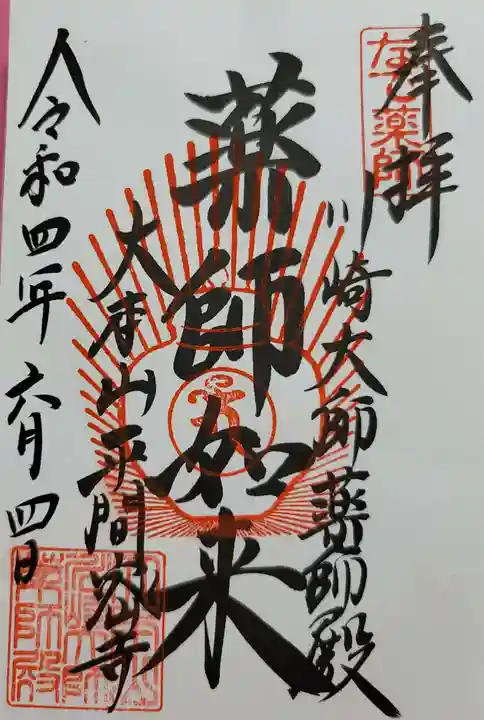 奉拝
なで薬師
川崎大師薬師殿
薬師如来
大本山平間寺
令和四年六月四日